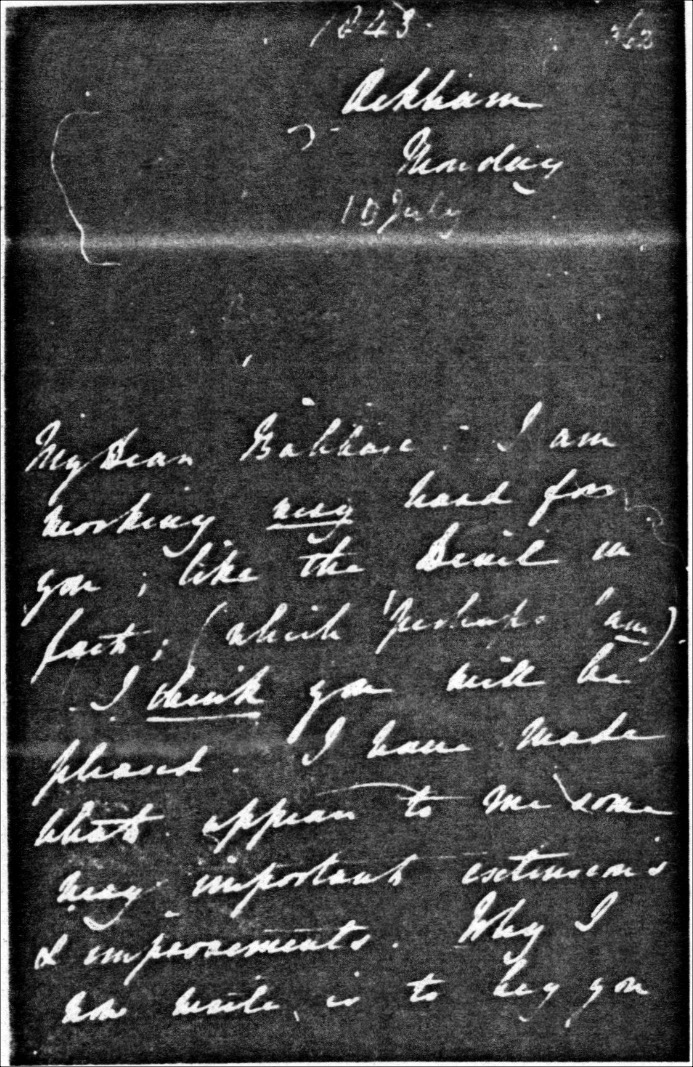 1843.
363
Ockham
Monday
10 July
My Dear Babbage. I am
working very hard for
you; like the Devil in
fact; (which perhaps I am).
I think you will be
pleased. I have made
what appear to me some
very important extensions
& improvements. Why I
now write, is to beg you